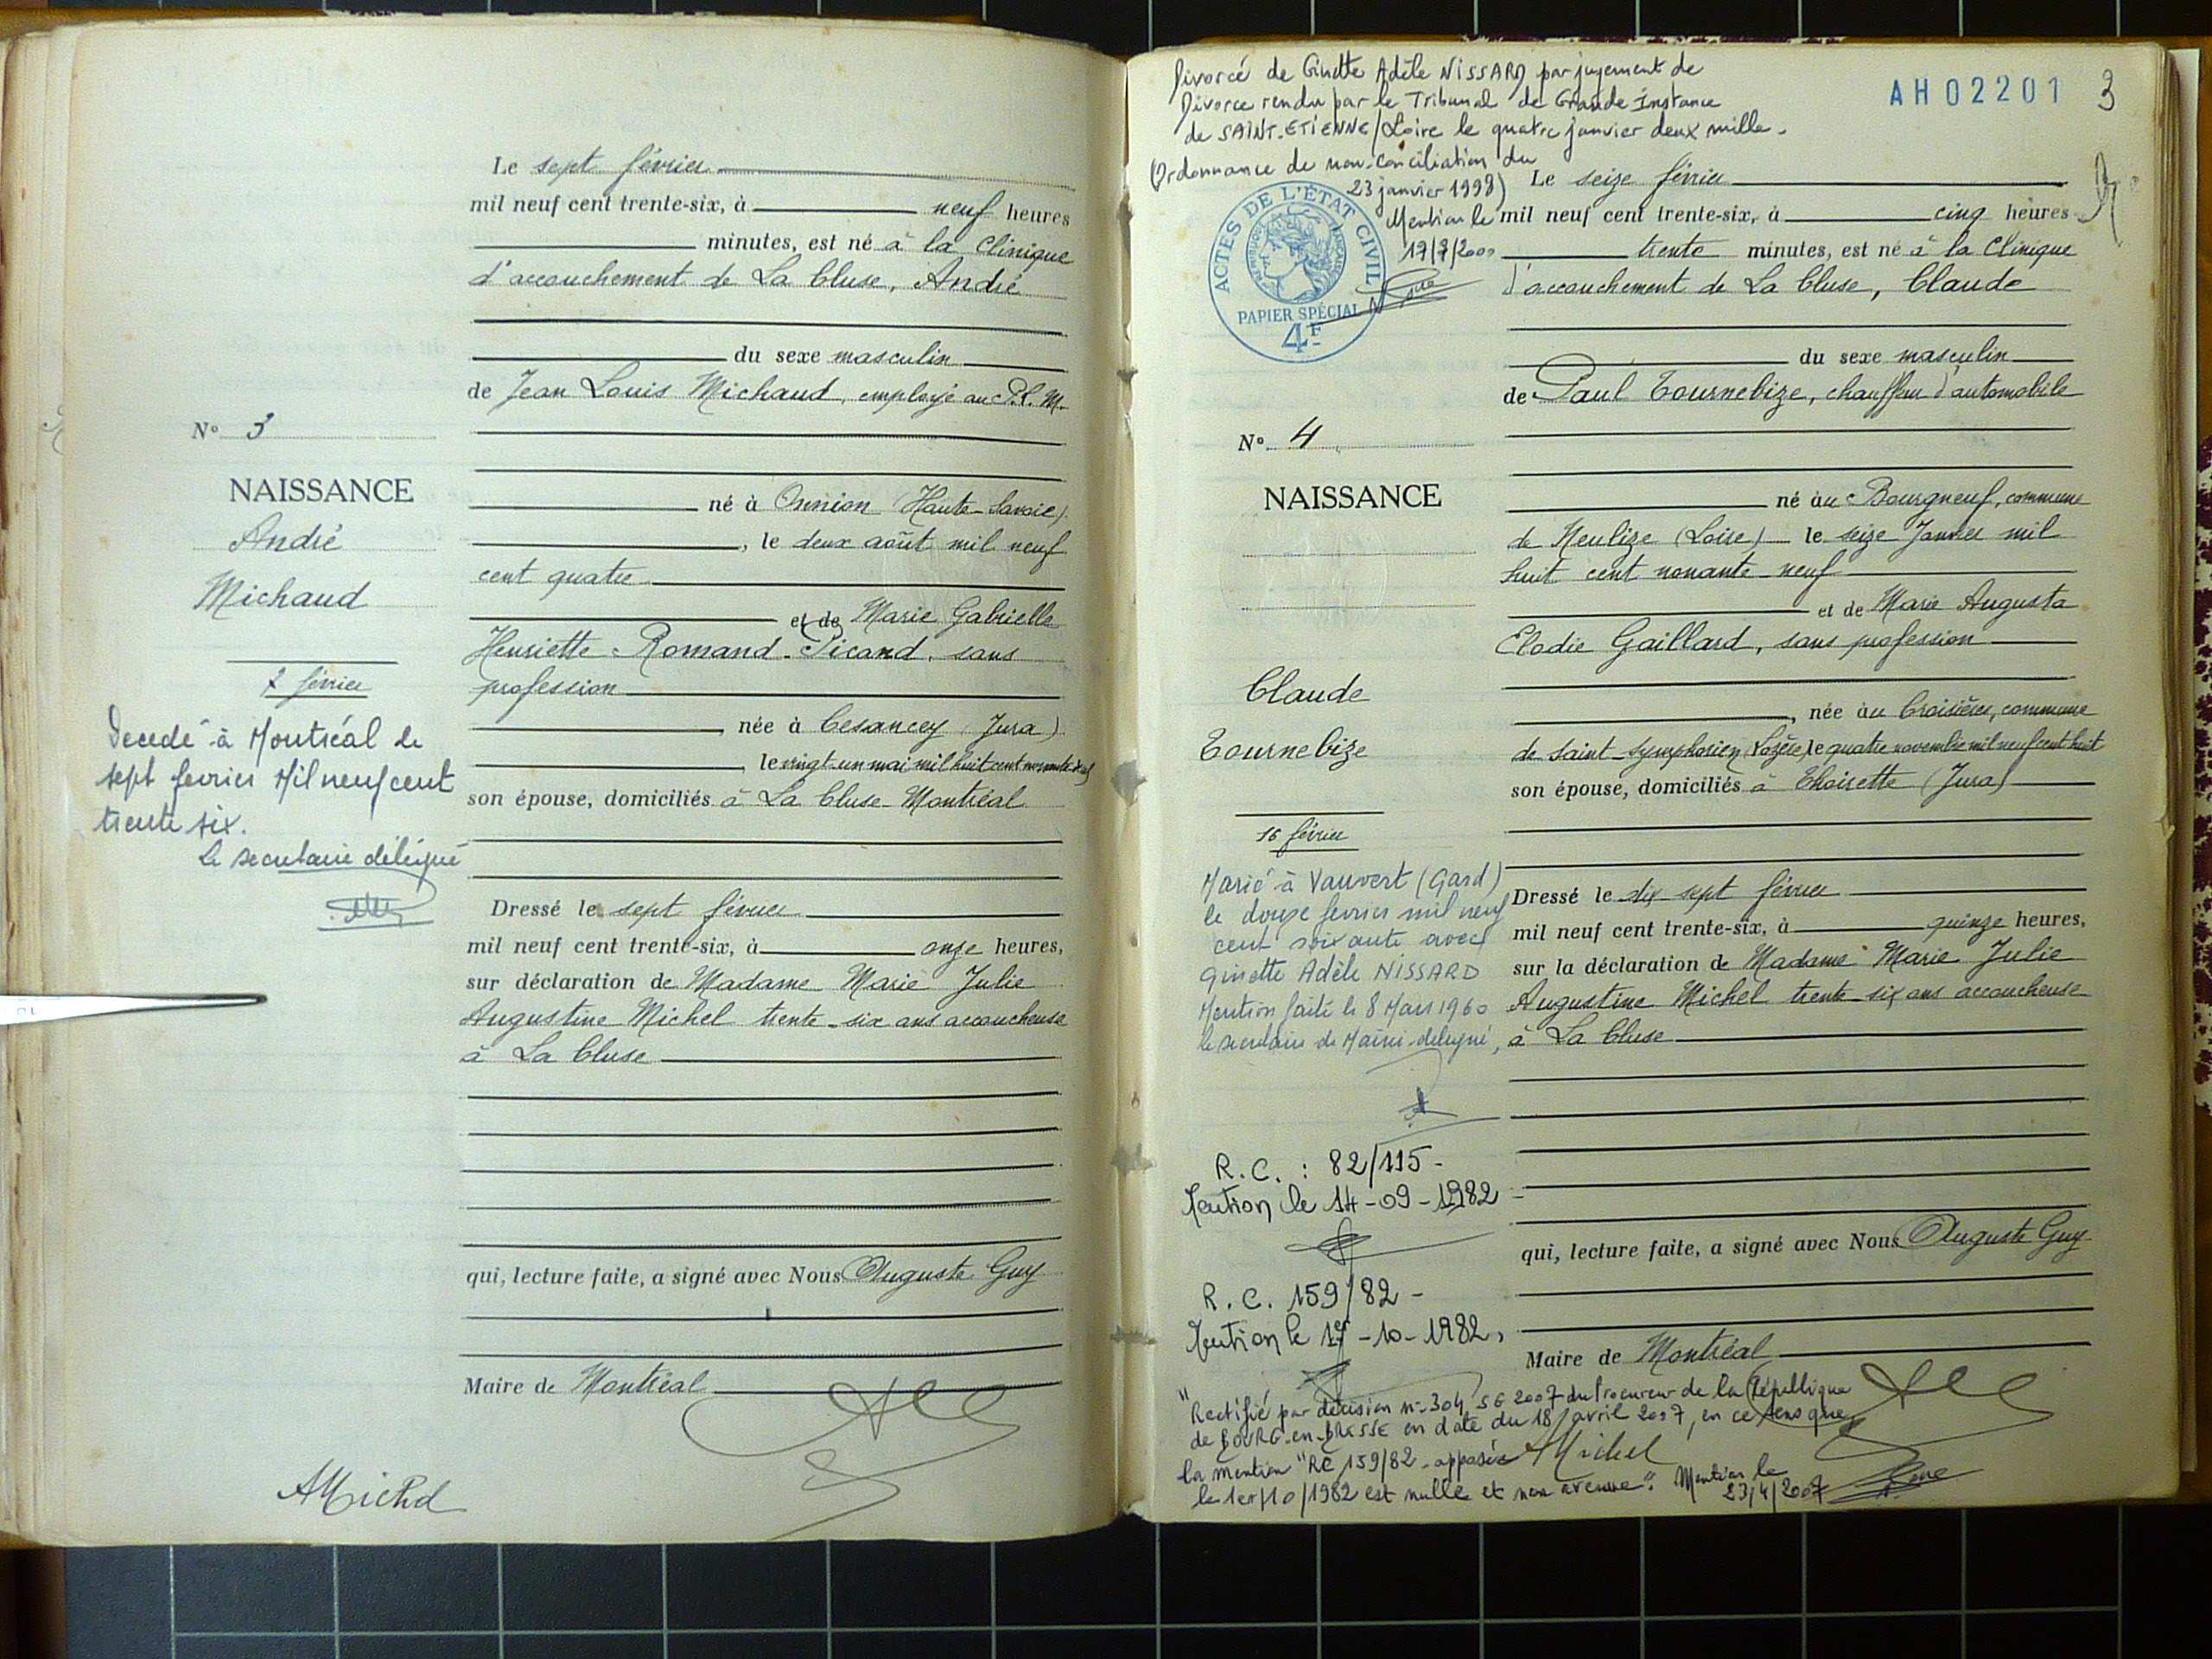 Le sept février
mil neuf cent trente-six, à neuf heures
minutes, est né à la Clinique
d'accouchement de La Cluse, André
du sexe masculin
de Jean Louis Michaud, employé au P.L.M.
né à Onnion (Haute-Savoie)
, le deux août mil neuf
cent quatre
et de Marie Gabrielle
Henriette Romand-Picand, sans
profession
, née à Cesancey (Jura)
le vingt-un mai mil huit cent nonante
son épouse, domiciliés à La Cluse-Montréal
Dressé le sept février
mil neuf cent trente-six, à onze heures,
sur déclaration de Madame Marie Julie
Augustine Michel trente-six ans accoucheuse
à La Cluse
qui, lecture faite, a signé avec Nous Auguste Guy
Maire de Montréal
AMichel
N° 3
NAISSANCE
André
Michaud
7 février
Decedé à Montréal le
sept fevrier Mil neuf cent
trente six.
Le secretaire délégué
AH02201 3
Divorcé de Ginette Adèle NISSARD par jugement de
Divorce rendu par le Tribunal de Grande Instance
de SAINT-ETIENNE/Loire le quatre janvier deux mille.
(Ordonnance de non-conciliation du
23 janvier 1998)
Mention le
17/7/2000
ACTES DE L'ÉTAT CIVIL
PAPIER SPÉCIAL
4F
Le seize février
mil neuf cent trente-six, à cinq heures
trente minutes, est né à la Clinique
d'accouchement de La Cluse, Claude
du sexe masculin
de Paul Tournebize, chauffeur d'automobile
né au Bourgneuf, commune
de Neulize (Loire) le seize Janvier mil
huit cent nonante-neuf
et de Marie Augusta
Elodie Gaillard, sans profession
, née au Croisières, commune
de Saint-Symphorien (Lozère) le quatre novembre mil neuf cent huit
son épouse, domiciliés à Thoirette (Jura)
Dressé le dix sept février
mil neuf cent trente-six, à quinze heures,
sur la déclaration de Madame Marie Julie
Augustine Michel trente-six ans accoucheuse
à La Cluse
qui, lecture faite, a signé avec Nous Auguste Guy
Maire de Montréal
AMichel
N° 4
NAISSANCE
Claude
Tournebize
16 février
Marié à Vauvert (Gard)
le douze fevrier mil neuf
cent soixante avec
Ginette Adèle NISSARD
Mention faite le 8 Mars 1960
le secretaire de Mairie délégué,
R.C. : 82/115 -
Mention le 14-09-1982
R.C. 159/82 -
Mention le 1er-10-1982.
"Rectifié par décision n° 304 SG 2007 du Procureur de la République
de BOURG-en-BRESSE en date du 18 avril 2007, en ce sens que
la mention "RC 159/82 - apposée
le 1er/10/1982 est nulle et non avenue". Mention le
23/4/2007